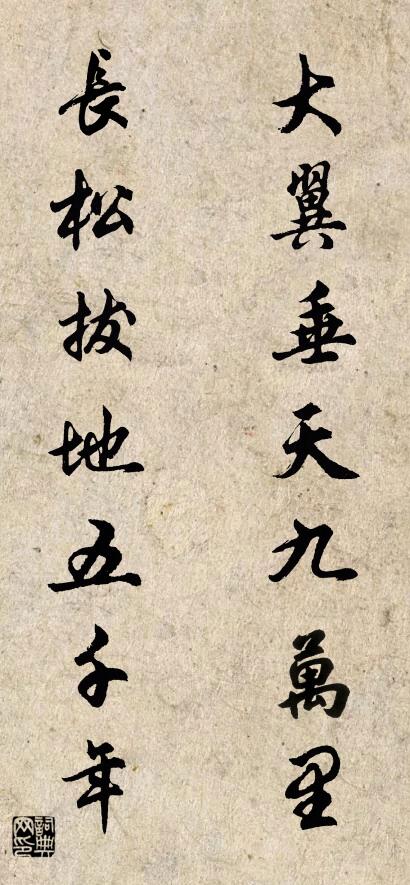 大翼垂天九萬里
長松拔地五千年
詞典网印